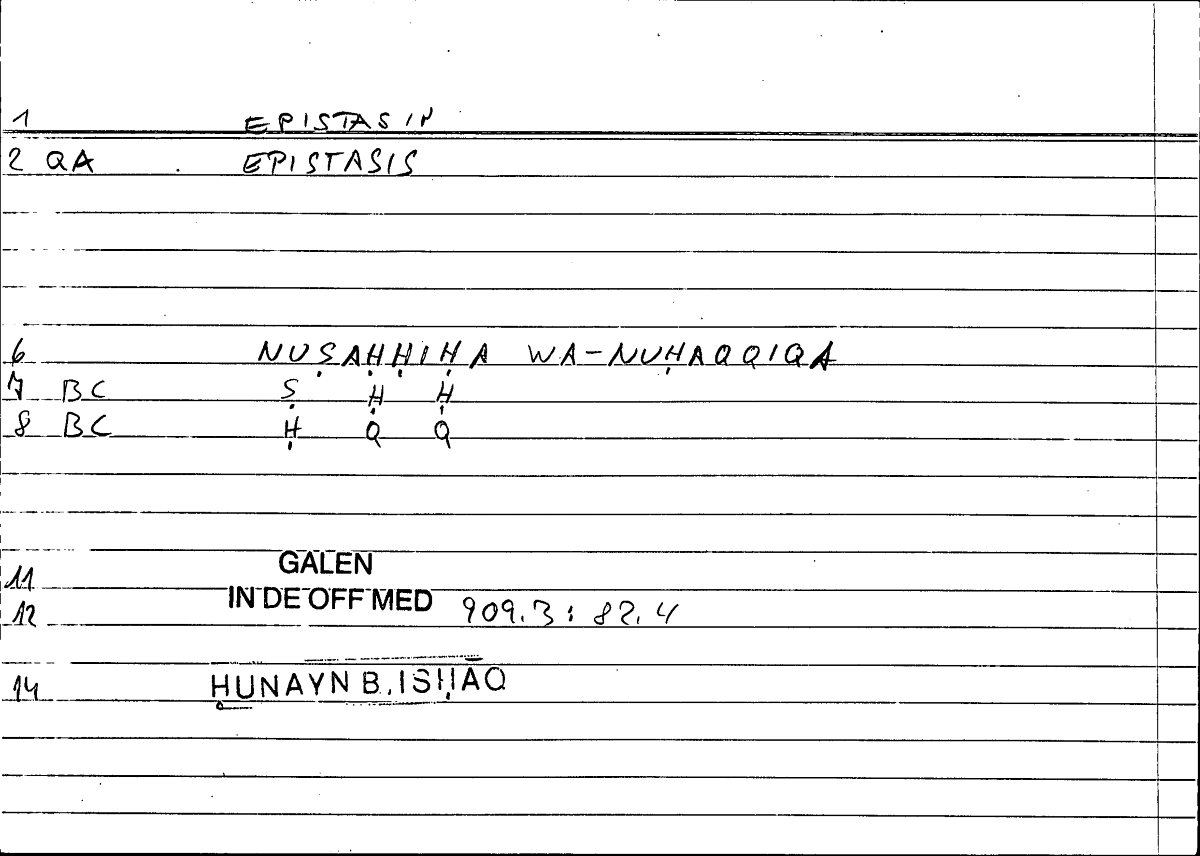 1 EPISTASIN
2 QA EPISTASIS
6 NUṢAḤḤIḤA WA-NUḤAQQIQA
7 BC Ṣ Ḥ Ḥ
8 BC Ḥ Q Q
11 GALEN
12 IN DE OFF MED 909.3: 82.4
14 ḤUNAYN B. ISḤĀQ